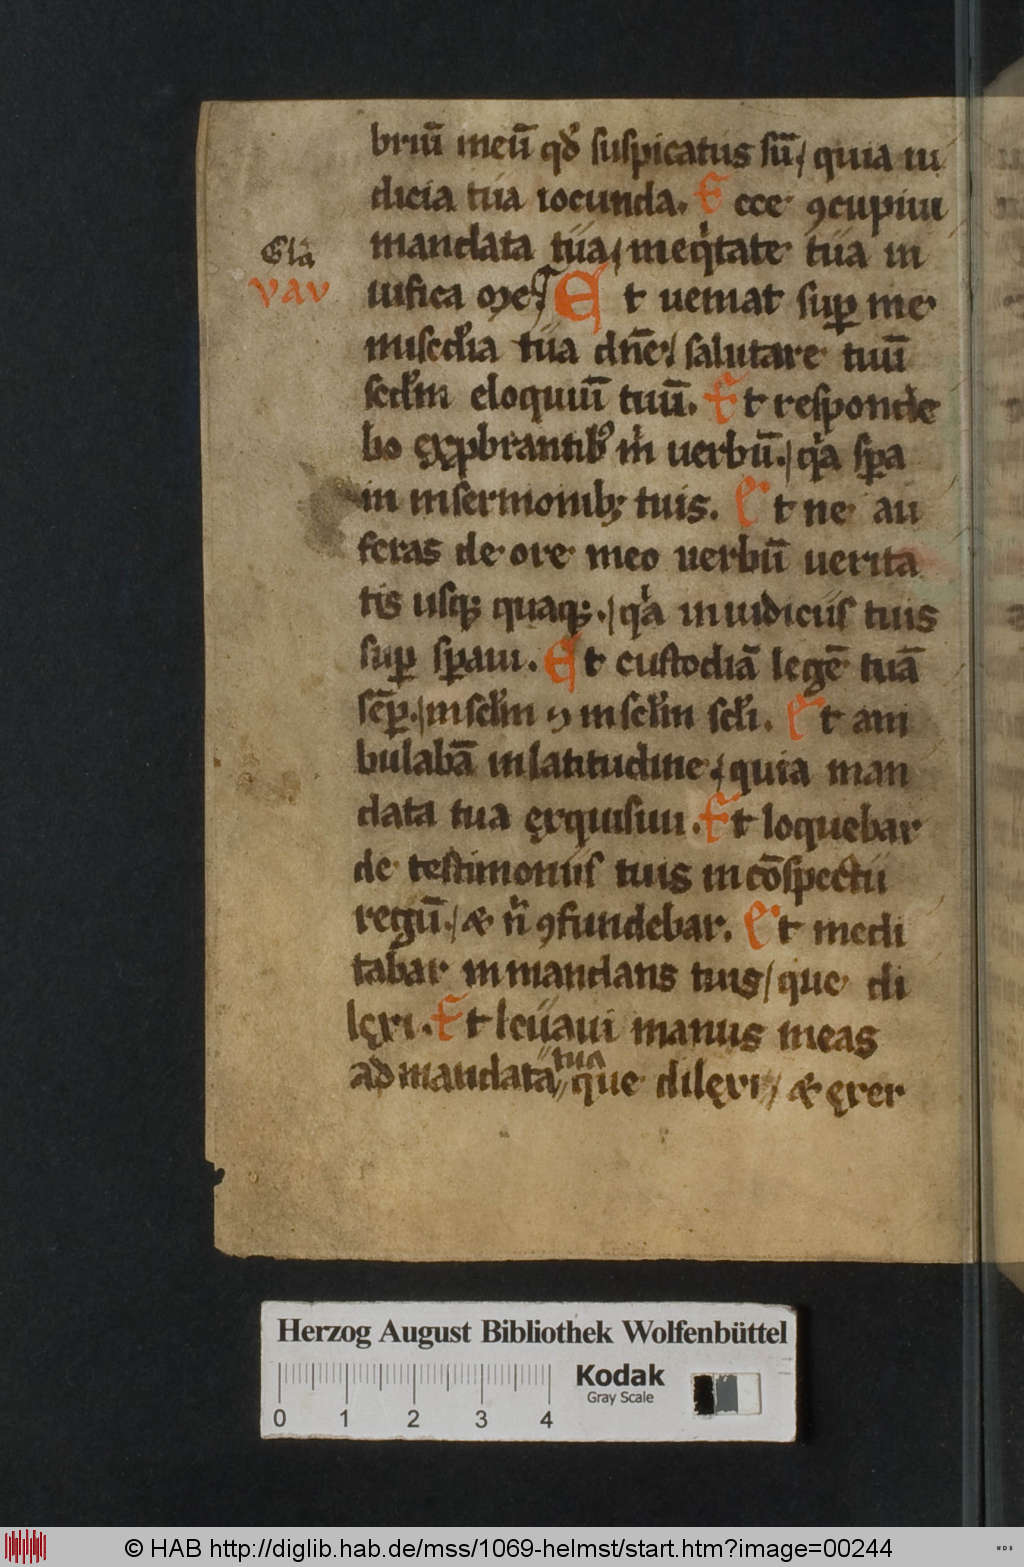 briū meū qd̕ suspicatus sū / quia iu
dicia tua iocunda. Ecce ꝯcupiui
mandata tua / ineq̇tate tua in
Gl̄a
uiuifica me /
VAV
Et ueniat suꝑ me
misedia tua dn̄e / salutare tuū
secdm eloquiū tuū. Et responde
bo exp̱brantib᷒ ṁ uerbū. / q̇a sꝑa
ui in sermonibꝫ tuis. Et ne au
feras de ore meo uerbū uerita
tis usqꝫ quaqꝫ. / q̇a in iudiciis tuis
suꝑ sꝑaui. Et custodiā legē tuā
sēꝑ. / in sec̄lm ꝯ in sec̄lm sec̄li. Et am
bulabā in latitudine / quia man
data tua ęxquisiui. Et loquebar
de testimoniis tuis in cōspectu
regū. / & n̄ ꝯfundebar. Et medi
tabar in mandatis tuis / que di
lęxi. Et leuaui manus meas
ad mandata tua que dilęxi / & ęxer
Herzog August Bibliothek Wolfenbüttel
Kodak
Gray Scale
0 1 2 3 4
© HAB http://diglib.hab.de/mss/1069-helmst/start.htm?image=00244